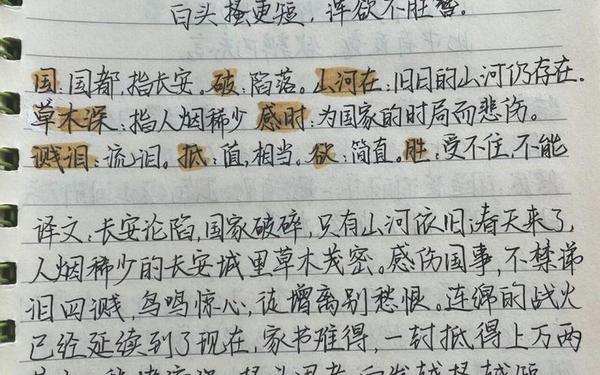 白头搔更短，浑欲不胜簪。
国：国都，指长安。破：陷落。山河在：旧日的山河仍存在。
草木深：指人烟稀少 感时：为国家的时局而悲伤。
溅泪：流泪。抵：值，相当。欲：简直。胜：受不住，不能
译文：长安沦陷，国家破碎，只有山河依旧；春天来了，
人烟稀少的长安城里草木茂密。感伤国事，不禁涕
泪四溅，鸟鸣惊心，徒增离别愁恨。连绵的战火
已经延续到了现在，家书难得，一封抵得上万两